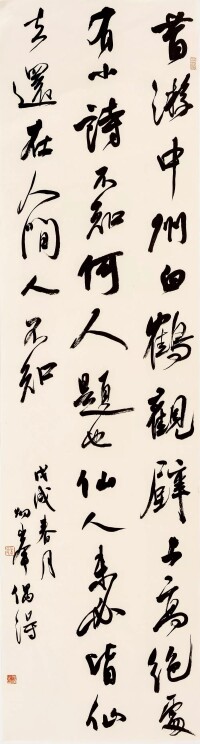 昔游中州白鹤觀壁上高绝處
有小詩不知何人題也仙人未必皆仙
去還在人間人不知
戊戌春月
炳奎偶得